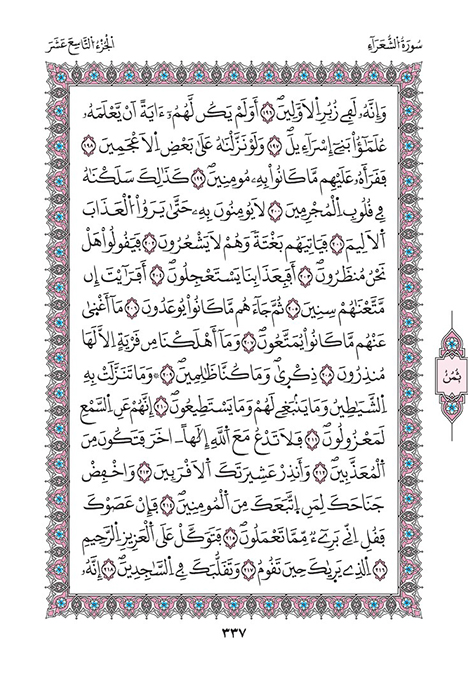 سُورَةُ الشُّعَرَآءِ
الجُزْءُ التَّاسِعَ عَشَرَ
وَإِنَّهُۥ لَفِے زُبُرِ اِلَاوَّلِينَۖ ١٩٦ أَوَلَمْ يَكُن لَّهُمُۥٓ ءَايَةً اَنْ يَّعْلَمَهُۥ
عُلَمَٰٓؤُاْ بَنِےٓ إِسْرَآءِيلَۖ ١٩٧ وَلَوْ نَزَّلْنَٰهُ عَلَىٰ بَعْضِ اِلَاعْجَمِينَ ١٩٨
فَقَرَأَهُۥ عَلَيْهِم مَّا كَانُواْ بِهِۦ مُومِنِينَۖ ١٩٩ كَذَٰلِكَ سَلَكْنَٰهُ
فِے قُلُوبِ اِلْمُجْرِمِينَ ٢٠٠ لَا يُومِنُونَ بِهِۦ حَتَّىٰ يَرَوُاْ اُلْعَذَابَ
اَلَالِيمَ ٢٠١ فَيَاتِيَهُم بَغْتَةً وَهُمْ لَا يَشْعُرُونَ ٢٠٢ فَيَقُولُواْ هَلْ
نَحْنُ مُنظَرُونَۖ ٢٠٣ أَفَبِعَذَابِنَا يَسْتَعْجِلُونَۖ ٢٠٤ أَفَرَٰٓيْتَ إِن
مَّتَّعْنَٰهُمْ سِنِينَ ٢٠٥ ثُمَّ جَآءَهُم مَّا كَانُواْ يُوعَدُونَ ٢٠٦ مَآ أَغْنَىٰ
عَنْهُم مَّا كَانُواْ يُمَتَّعُونَۖ ٢٠٧ وَمَآ أَهْلَكْنَا مِن قَرْيَةٍ اِلَّا لَهَا
مُنذِرُونَ ٢٠٨ ذِكْر۪ىٰ وَمَا كُنَّا ظَٰلِمِينَۖ ٢٠٩ وَمَا تَنَزَّلَتْ بِهِ
اِلشَّيَٰطِينُ وَمَا يَنۢبَغِے لَهُمْ وَمَا يَسْتَطِيعُونَۖ ٢١٠ إِنَّهُمْ عَنِ اِلسَّمْعِ
لَمَعْزُولُونَۖ ٢١١ فَلَا تَدْعُ مَعَ اَللَّهِ إِلَٰهاً اٰخَرَ فَتَكُونَ مِنَ
اَلْمُعَذَّبِينَۖ ٢١٢ وَأَنذِرْ عَشِيرَتَكَ اَلَاقْرَبِينَۖ ٢١٣ وَاخْفِضْ
جَنَاحَكَ لِمَنِ اِتَّبَعَكَ مِنَ اَلْمُومِنِينَۖ ٢١٤ فَإِنْ عَصَوْكَ
فَقُلِ اِنِّے بَرِےٓءٌ مِّمَّا تَعْمَلُونَۖ ٢١٥ فَتَوَكَّلْ عَلَى اَلْعَزِيزِ اِلرَّحِيمِ
٢١٦ اِلذِے يَر۪يٰكَ حِينَ تَقُومُ ٢١٧ وَتَقَلُّبَكَ فِے اِلسَّٰجِدِينَۖ ٢١٨ إِنَّهُۥ
ثُمُنُ
٣٣٧